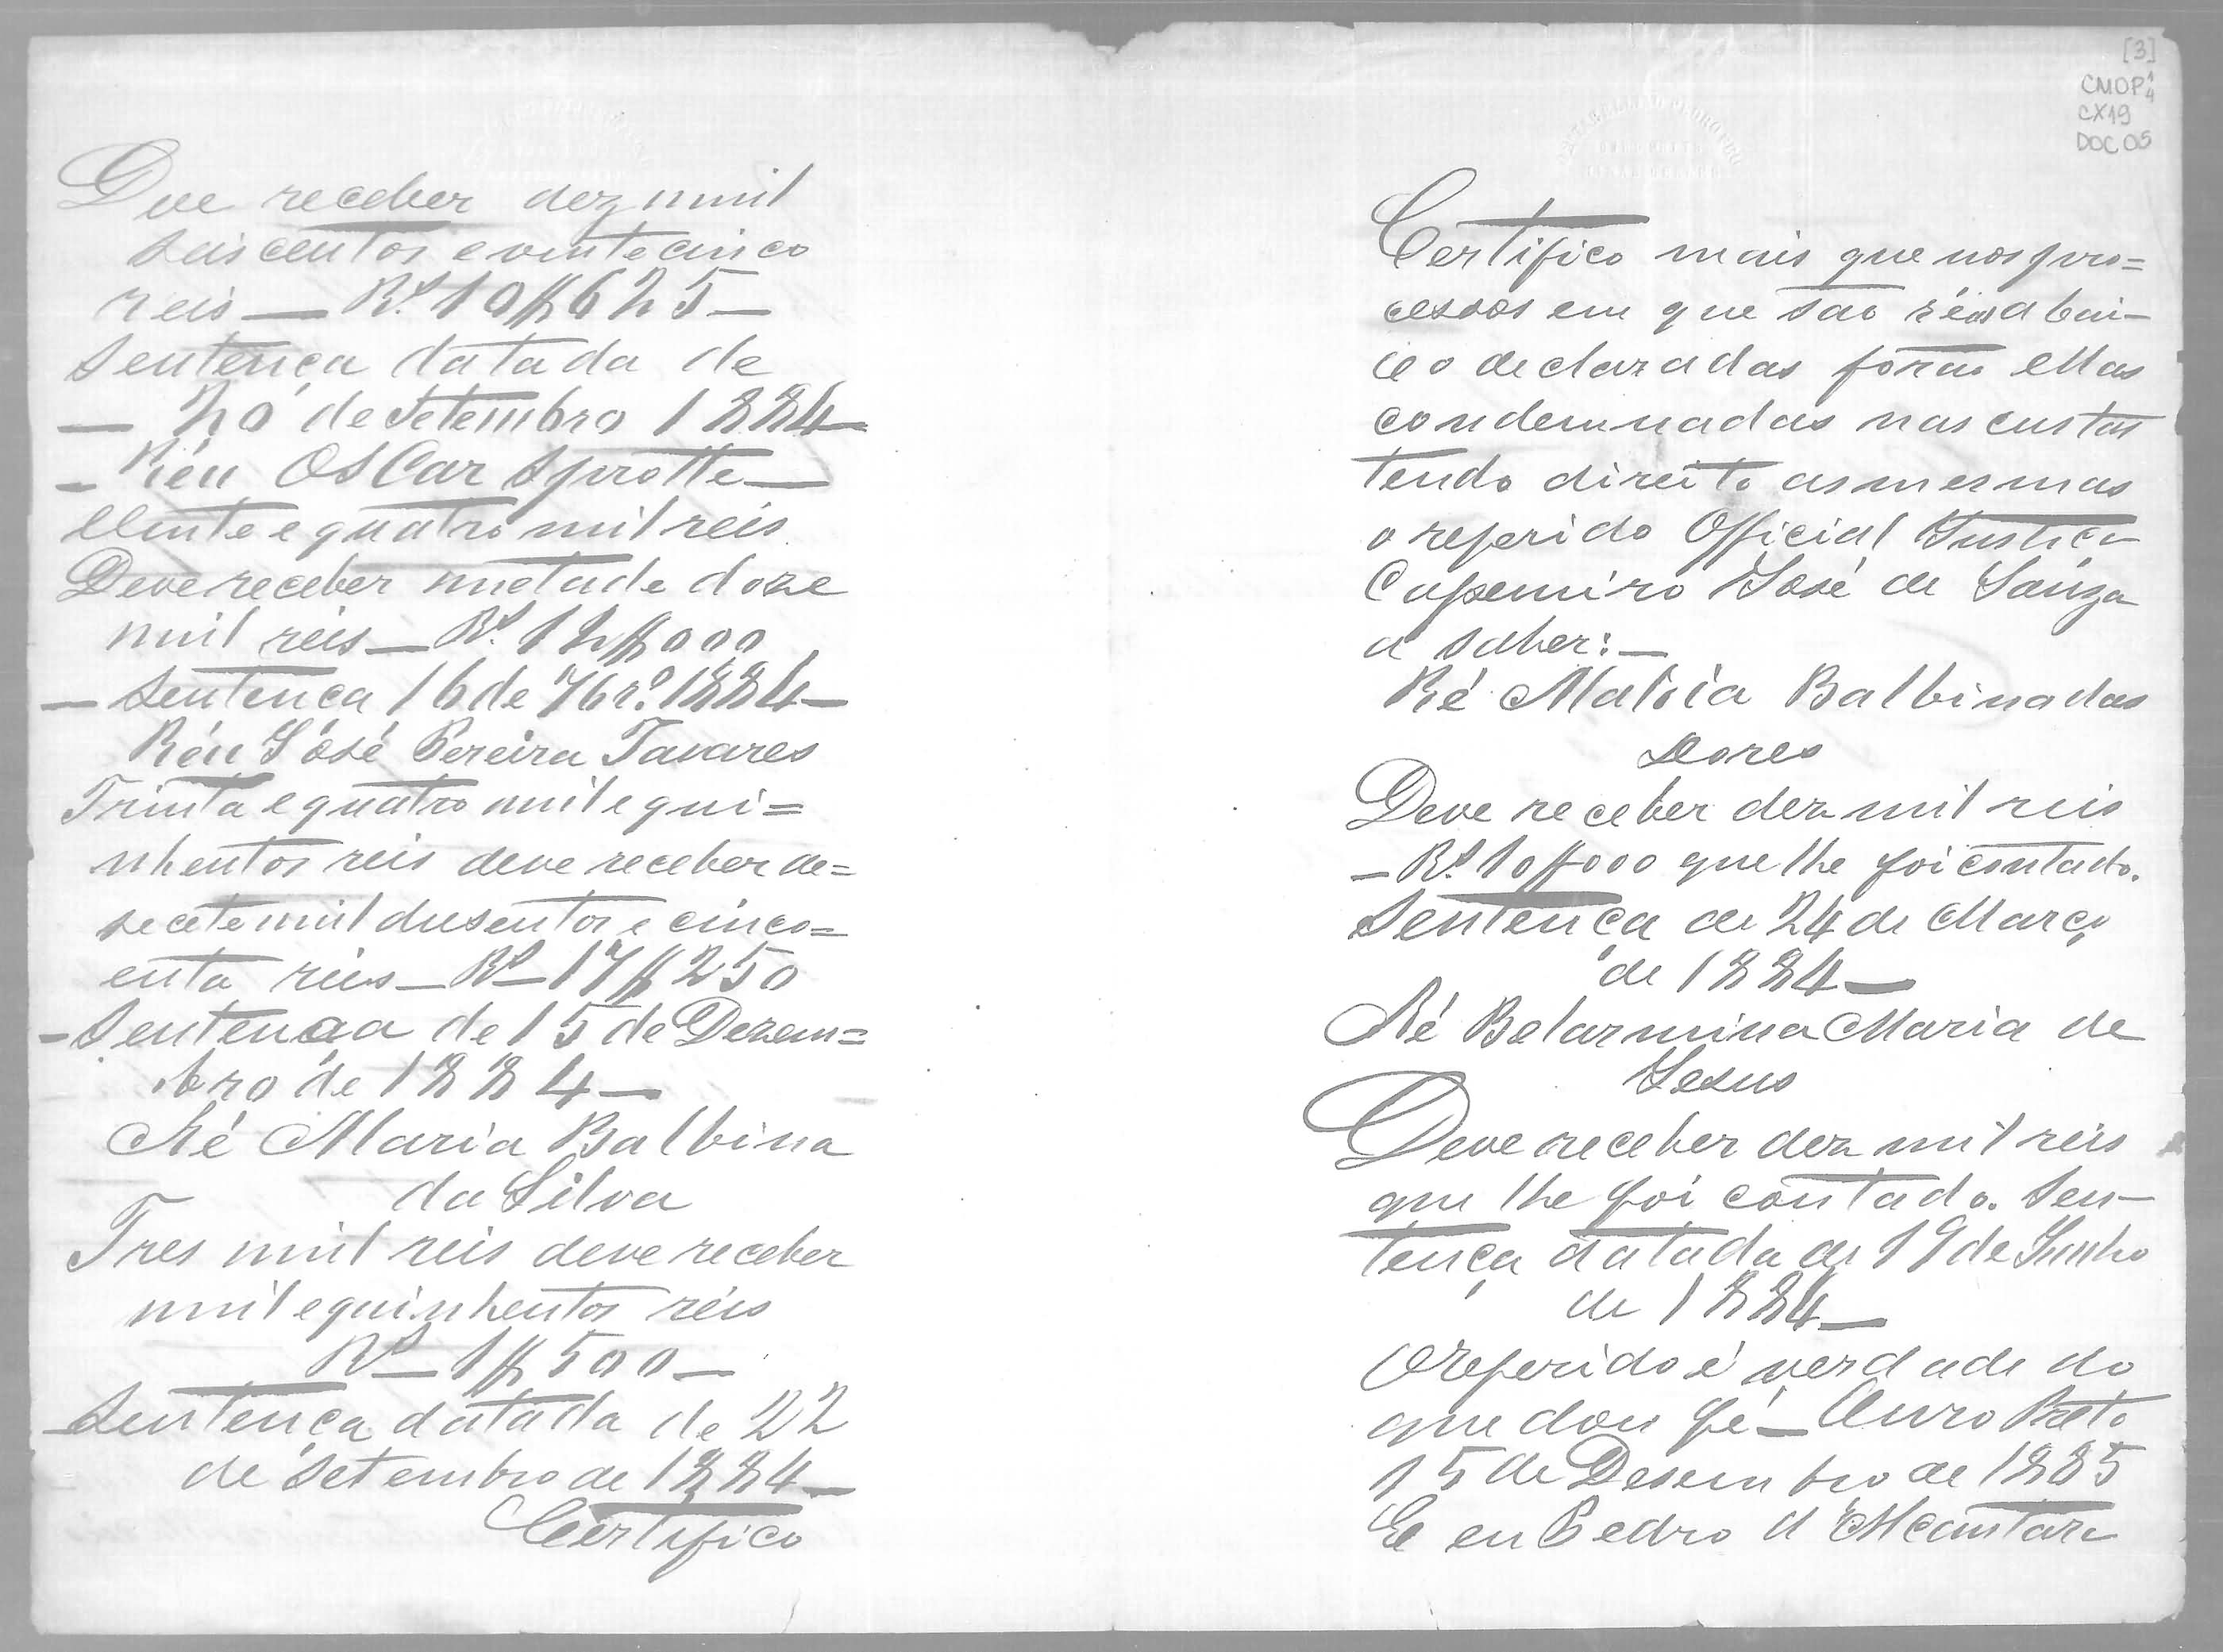 Dve receber dez mil
seiscentos e vinte cinco
reis — Rs. 10$625 —
Sentença datada de
— 20 de Setembro 1884 —
— Réu Oscar Sprotte —
Vinte e quatro mil reis.
Deve receber metade doze
mil reis — Rs. 12$000
— Sentença 16 de 7br.o 1884 —
Réu José Pereira Tavares
Trinta e quatro mil e qui=
nhentos reis deve receber de=
secete mil dusentos e cinco=
enta reis — Rs — 17$250
— Sentença de 15 de Dezem=
bro de 1884 —
Ré Maria Balbina
da Silva
Tres mil reis deve receber
mil e quinhentos reis
Rs — 1$500 —
Sentença datada de 22
de Setembro de 1884 —
Certifico
[3]
CMOP 1/4
CX19
DOC 05
Certifico mais que nos pro=
cessos em que são réos abai-
xo declaradas forão ellas
condemnadas nas custas
tendo direito as mesmas
o referido Official Justiça
José de Souza
a saber: —
Ré Maria Balbina das
Dores
Deve receber dez mil reis
— Rs. 10$000 que lhe foi contado.
Sentença de 24 de Março
de 1884 —
Ré Belarmina Maria de
Jesus
Deve receber dez mil reis
que lhe foi contado. Sen-
tença datada de 19 de Junho
de 1884 —
O referido é verdade do
que dou fé — Ouro Preto
15 de Desembro de 1885
E eu Pedro d'Alcantara